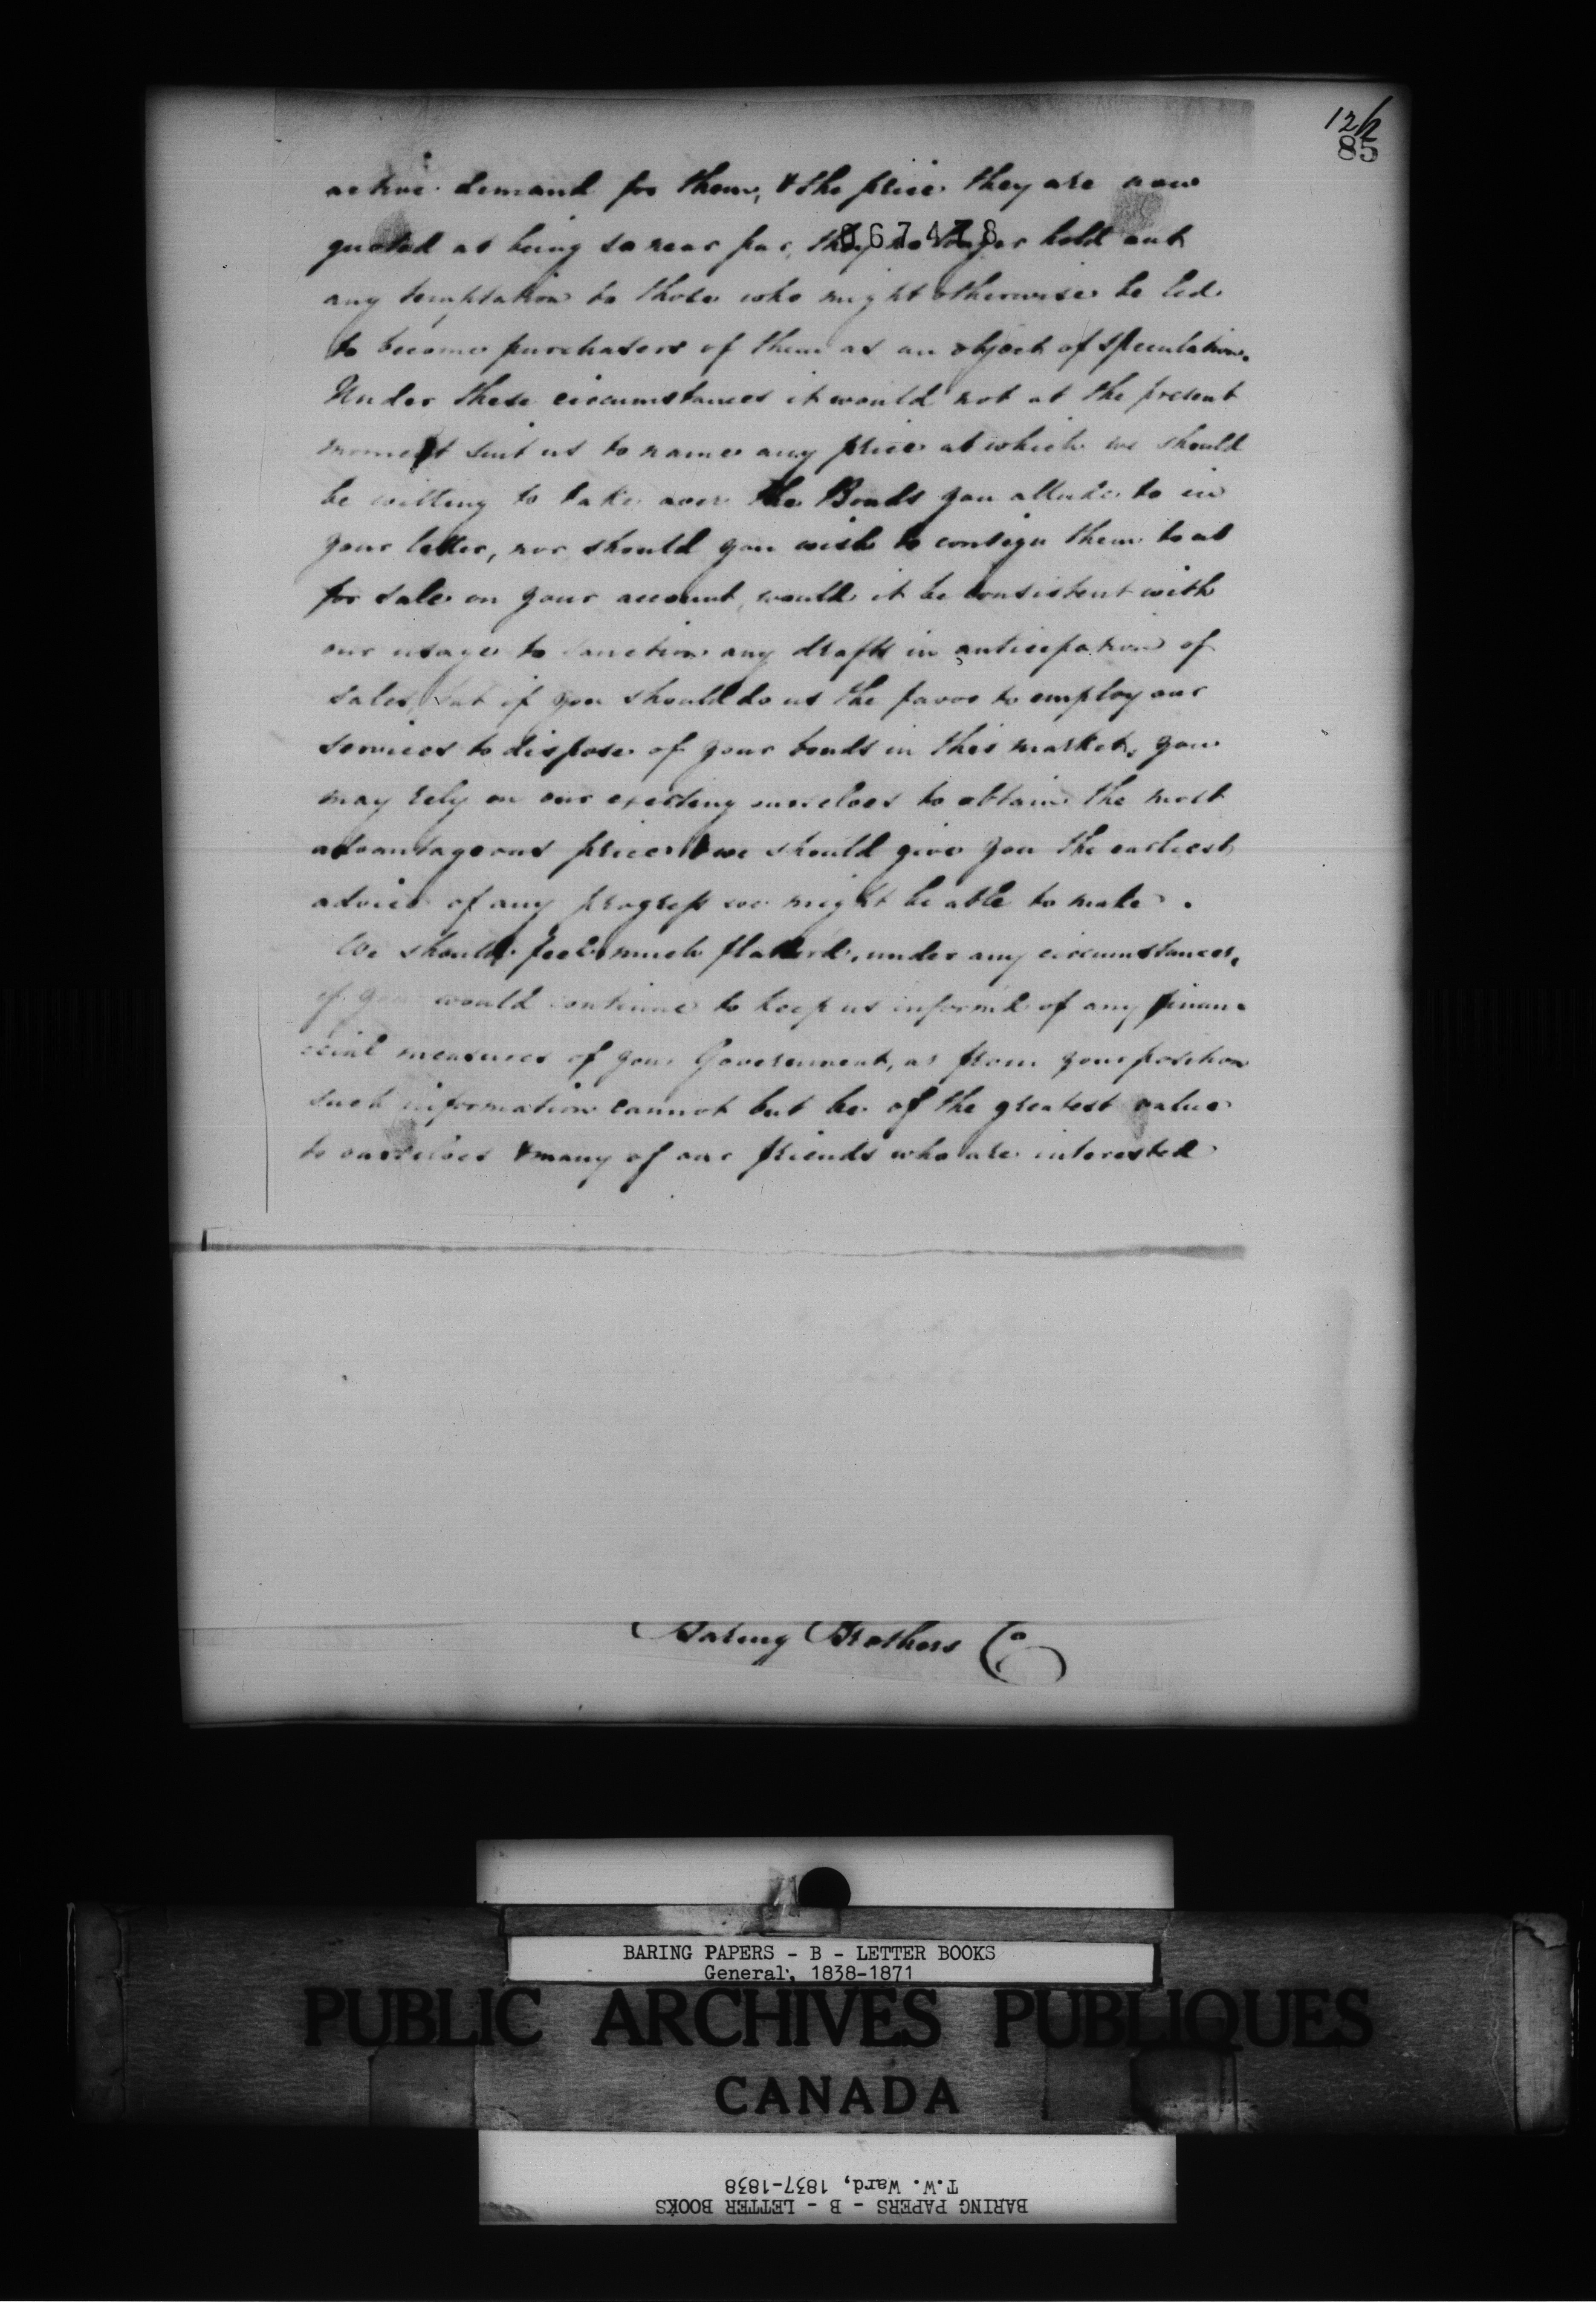 12h
85
active demand for them, & the price they are now
067478
quoted at being so near par, they no longer hold out
any temptation to those who might otherwise be led
to become purchasers of them as an object of speculation.
Under these circumstances it would not at the present
moment suit us to name any price at which we should
be willing to take over the Bonds you allude to in
your letter, nor should you wish to consign them to us
for sale on your account, would it be consistent with
our usage to sanction any drafts in anticipation of
sales, but if you should do us the favor to employ our
services to dispose of your bonds in this market, you
may rely on our exerting ourselves to obtain the most
advantageous prices & we should give you the earliest
advice of any progress we might be able to make.
We should feel much flatterd, under any circumstances,
if you would continue to keep us informd of any finan-
cial measures of your Government, as from your position
such information cannot but be of the greatest value
to ourselves & many of our friends who are interested
Baring Brothers Co
BARING PAPERS - B - LETTER BOOKS
General, 1838-1871
PUBLIC ARCHIVES PUBLIQUES
CANADA
BARING PAPERS - B - LETTER BOOKS
T.W. Ward, 1837-1838